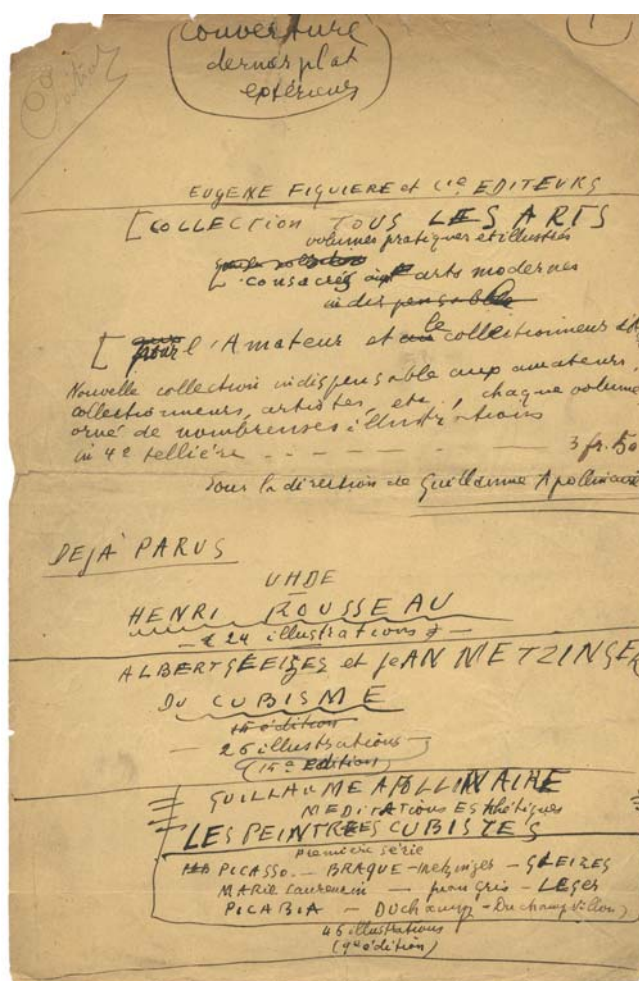 couverture
dernier plat
extérieur
1
EUGENE FIGUIERE et Cie EDITEURS
[COLLECTION TOUS LES ARTS
volumes pratiques et illustrés
[consacrés aux arts modernes
indispensable
[pour l'Amateur et le collectionneur d'
Nouvelle collection indispensable aux amateurs,
collectionneurs, artistes, etc, chaque volume
orné de nombreuses illustrations
in 4º tellière - - - - - - 3 fr. 50
Sous la direction de Guillaume Apollinaire
DEJA PARUS
UHDE
HENRI ROUSSEAU
- 24 illustrations -
ALBERT GLEIZES et JEAN METZINGER
DU CUBISME
15e édition
- 26 illustrations -
(15e Edition)
GUILLAUME APOLLINAIRE
MEDITATIONS ESthétiques
LES PEINTRES CUBISTES
première série
PICASSO - BRAQUE - Metzinger - GLEIZES
MARIE Laurencin - juan gris - LEGER
PICABIA - DUchamp - Duchamp Villon
46 illustrations
(9e édition)